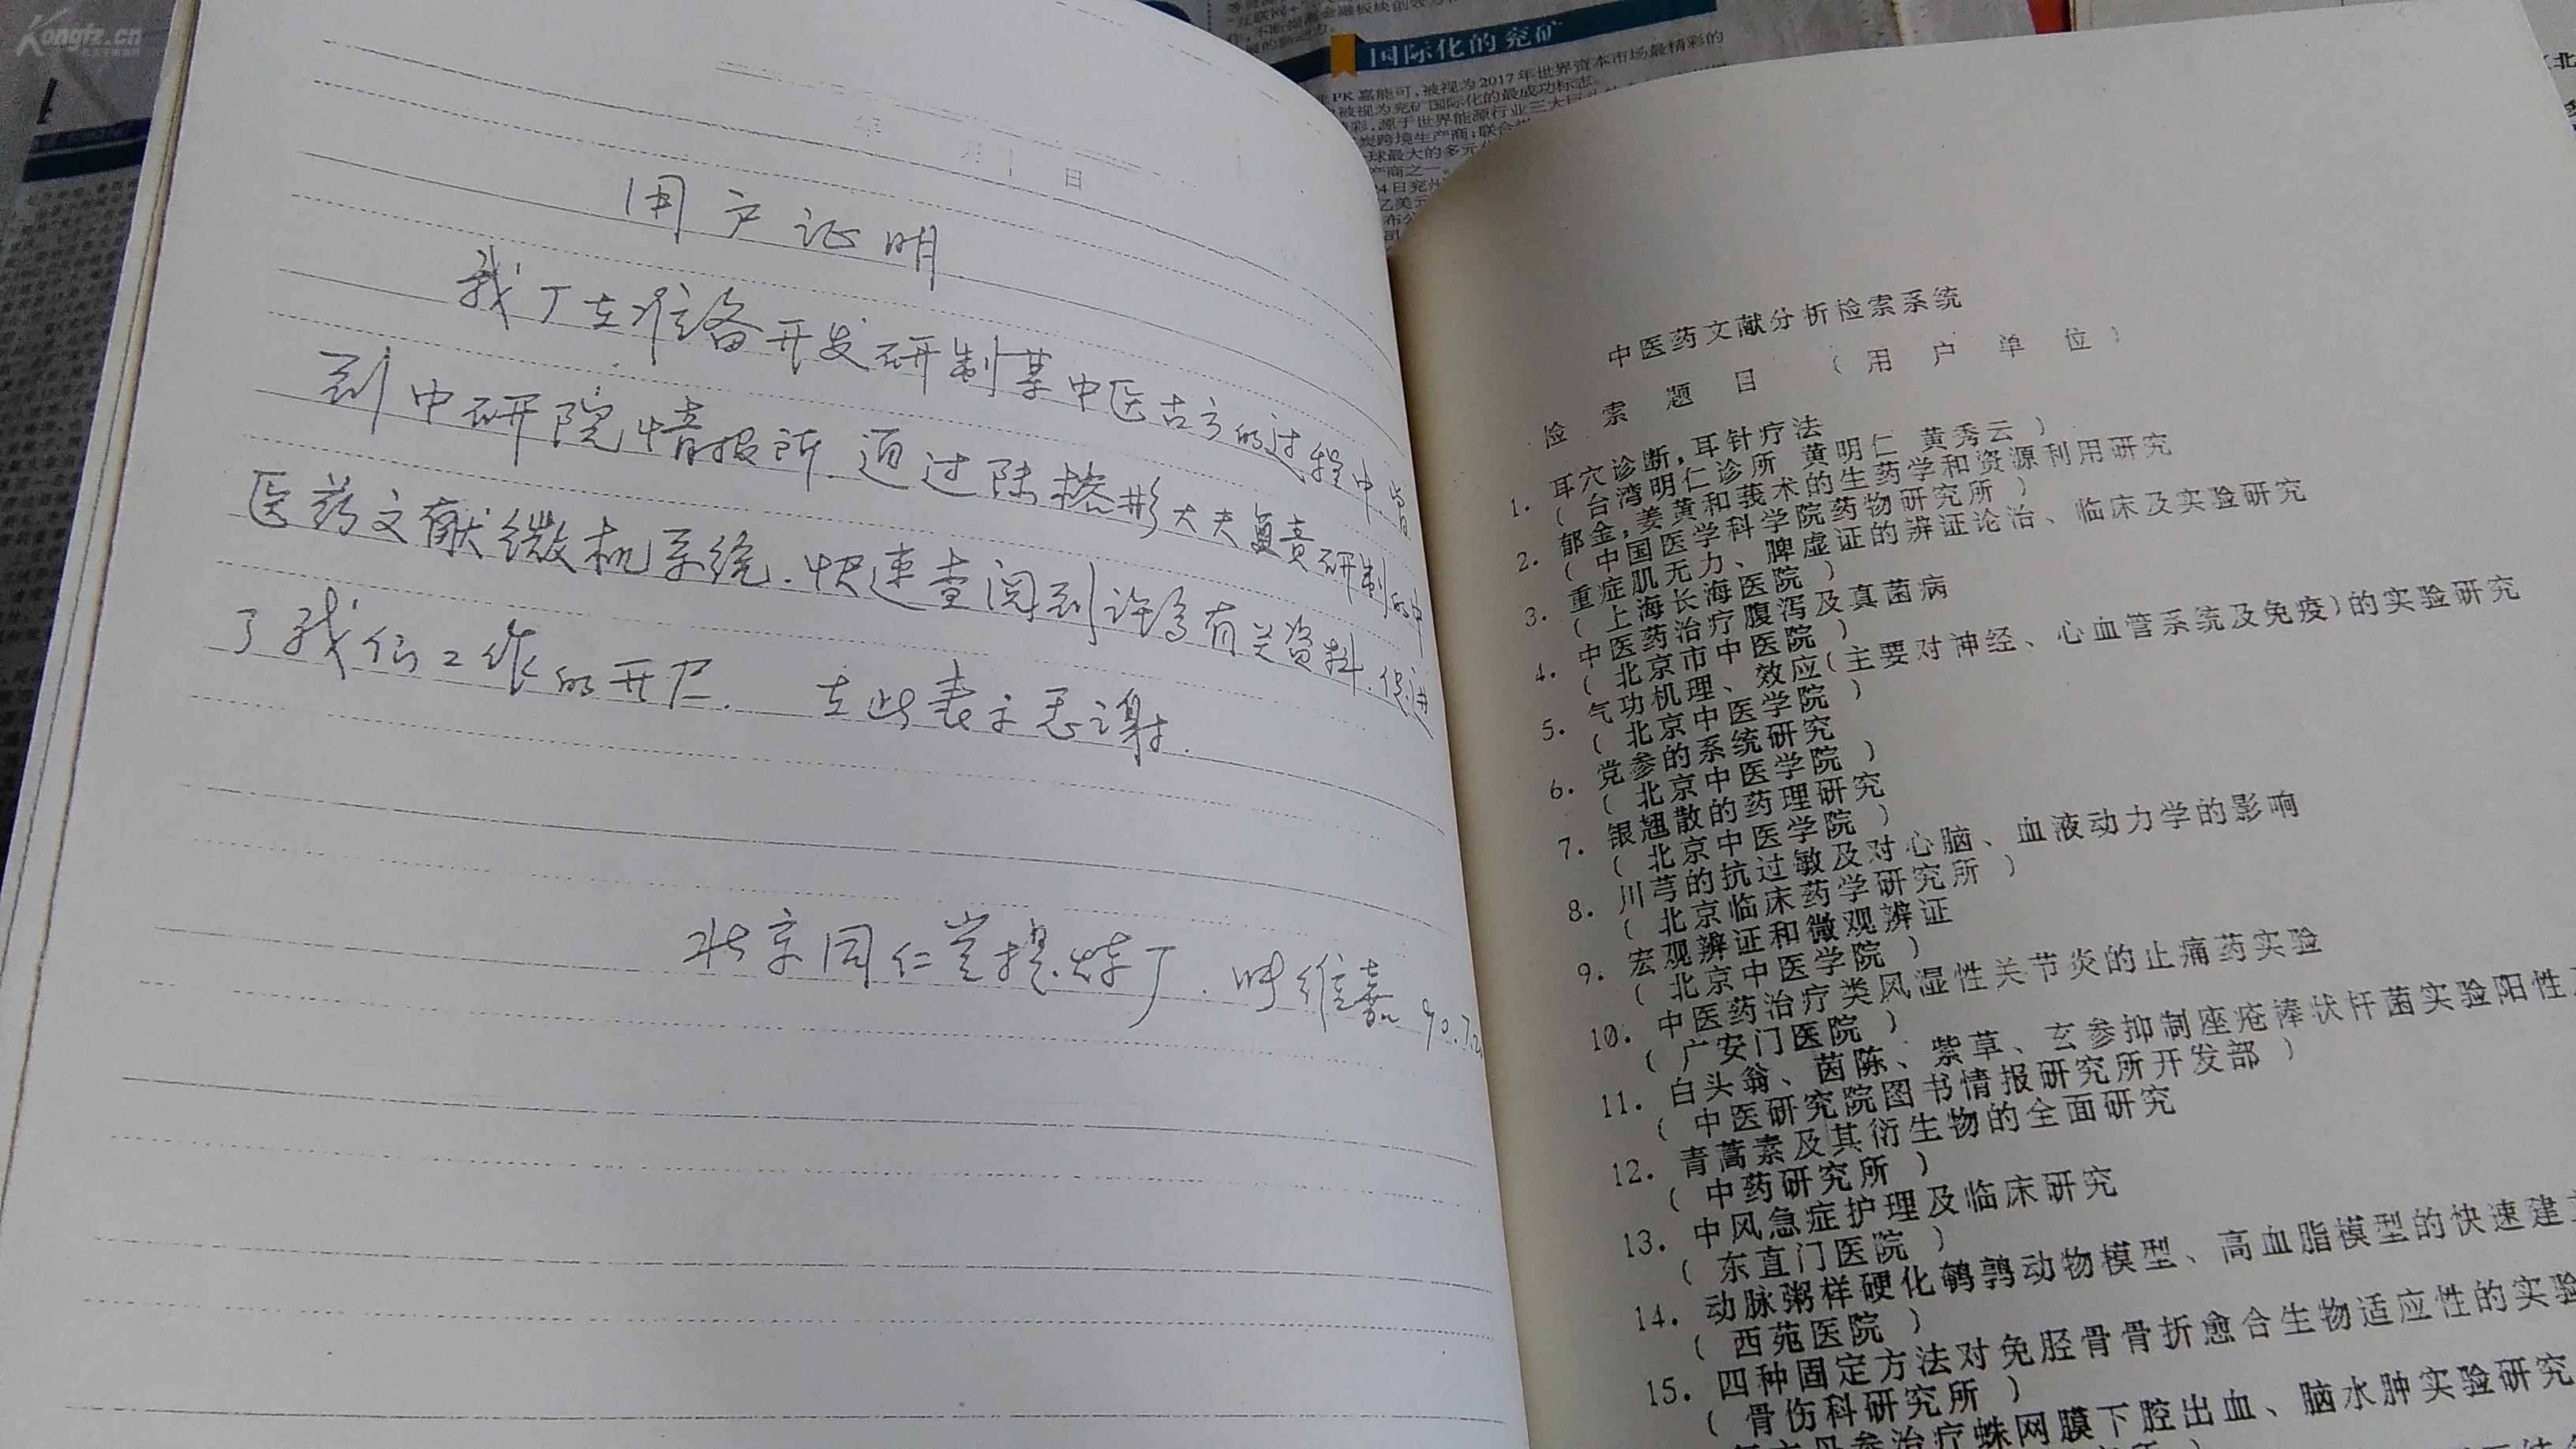 Kongfz.cn
国际化的兖矿
PK嘉能可,被视为2017年世界资本市场最精彩的
被视为兖矿国际化的最成功标志。
彩,源于世界能源行业三大巨头
炭跨境生产商;联合
球最大的多元化
产商之一。
24日兖州
亿美元
布公
司
年 月 日
用户证明
我厂在准备开发研制某中医古方的过程中,曾
到中研院情报所.通过陆 大夫负责研制的中
医药文献微机系统.快速查阅到许多有关资料.促进
了我们工作的开展. 在此表示感谢.
北京同仁堂提炼厂. 维嘉 90.7.2
中医药文献分析检索系统
检 索 题 目 ( 用 户 单 位 )
1. 耳穴诊断,耳针疗法
( 台湾明仁诊所 黄明仁 黄秀云 )
2. 郁金,姜黄和莪术的生药学和资源利用研究
( 中国医学科学院药物研究所 )
3. 重症肌无力、脾虚证的辨证论治、临床及实验研究
( 上海长海医院 )
4. 中医药治疗腹泻及真菌病
( 北京市中医院 )
5. 气功机理、效应(主要对神经、心血管系统及免疫)的实验研究
( 北京中医学院 )
6. 党参的系统研究
( 北京中医学院 )
7. 银翘散的药理研究
( 北京中医学院 )
8. 川芎的抗过敏及对心脑、血液动力学的影响
( 北京临床药学研究所 )
9. 宏观辨证和微观辨证
( 北京中医学院 )
10. 中医药治疗类风湿性关节炎的止痛药实验
( 广安门医院 )
11. 白头翁、茵陈、紫草、玄参抑制座疮棒状杆菌实验阳性
( 中医研究院图书情报研究所开发部 )
12. 青蒿素及其衍生物的全面研究
( 中药研究所 )
13. 中风急症护理及临床研究
( 东直门医院 )
14. 动脉粥样硬化鹌鹑动物模型、高血脂模型的快速建
( 西苑医院 )
15. 四种固定方法对兔胫骨骨折愈合生物适应性的实验
( 骨伤科研究所 )
丹参治疗蛛网膜下腔出血、脑水肿实验研究